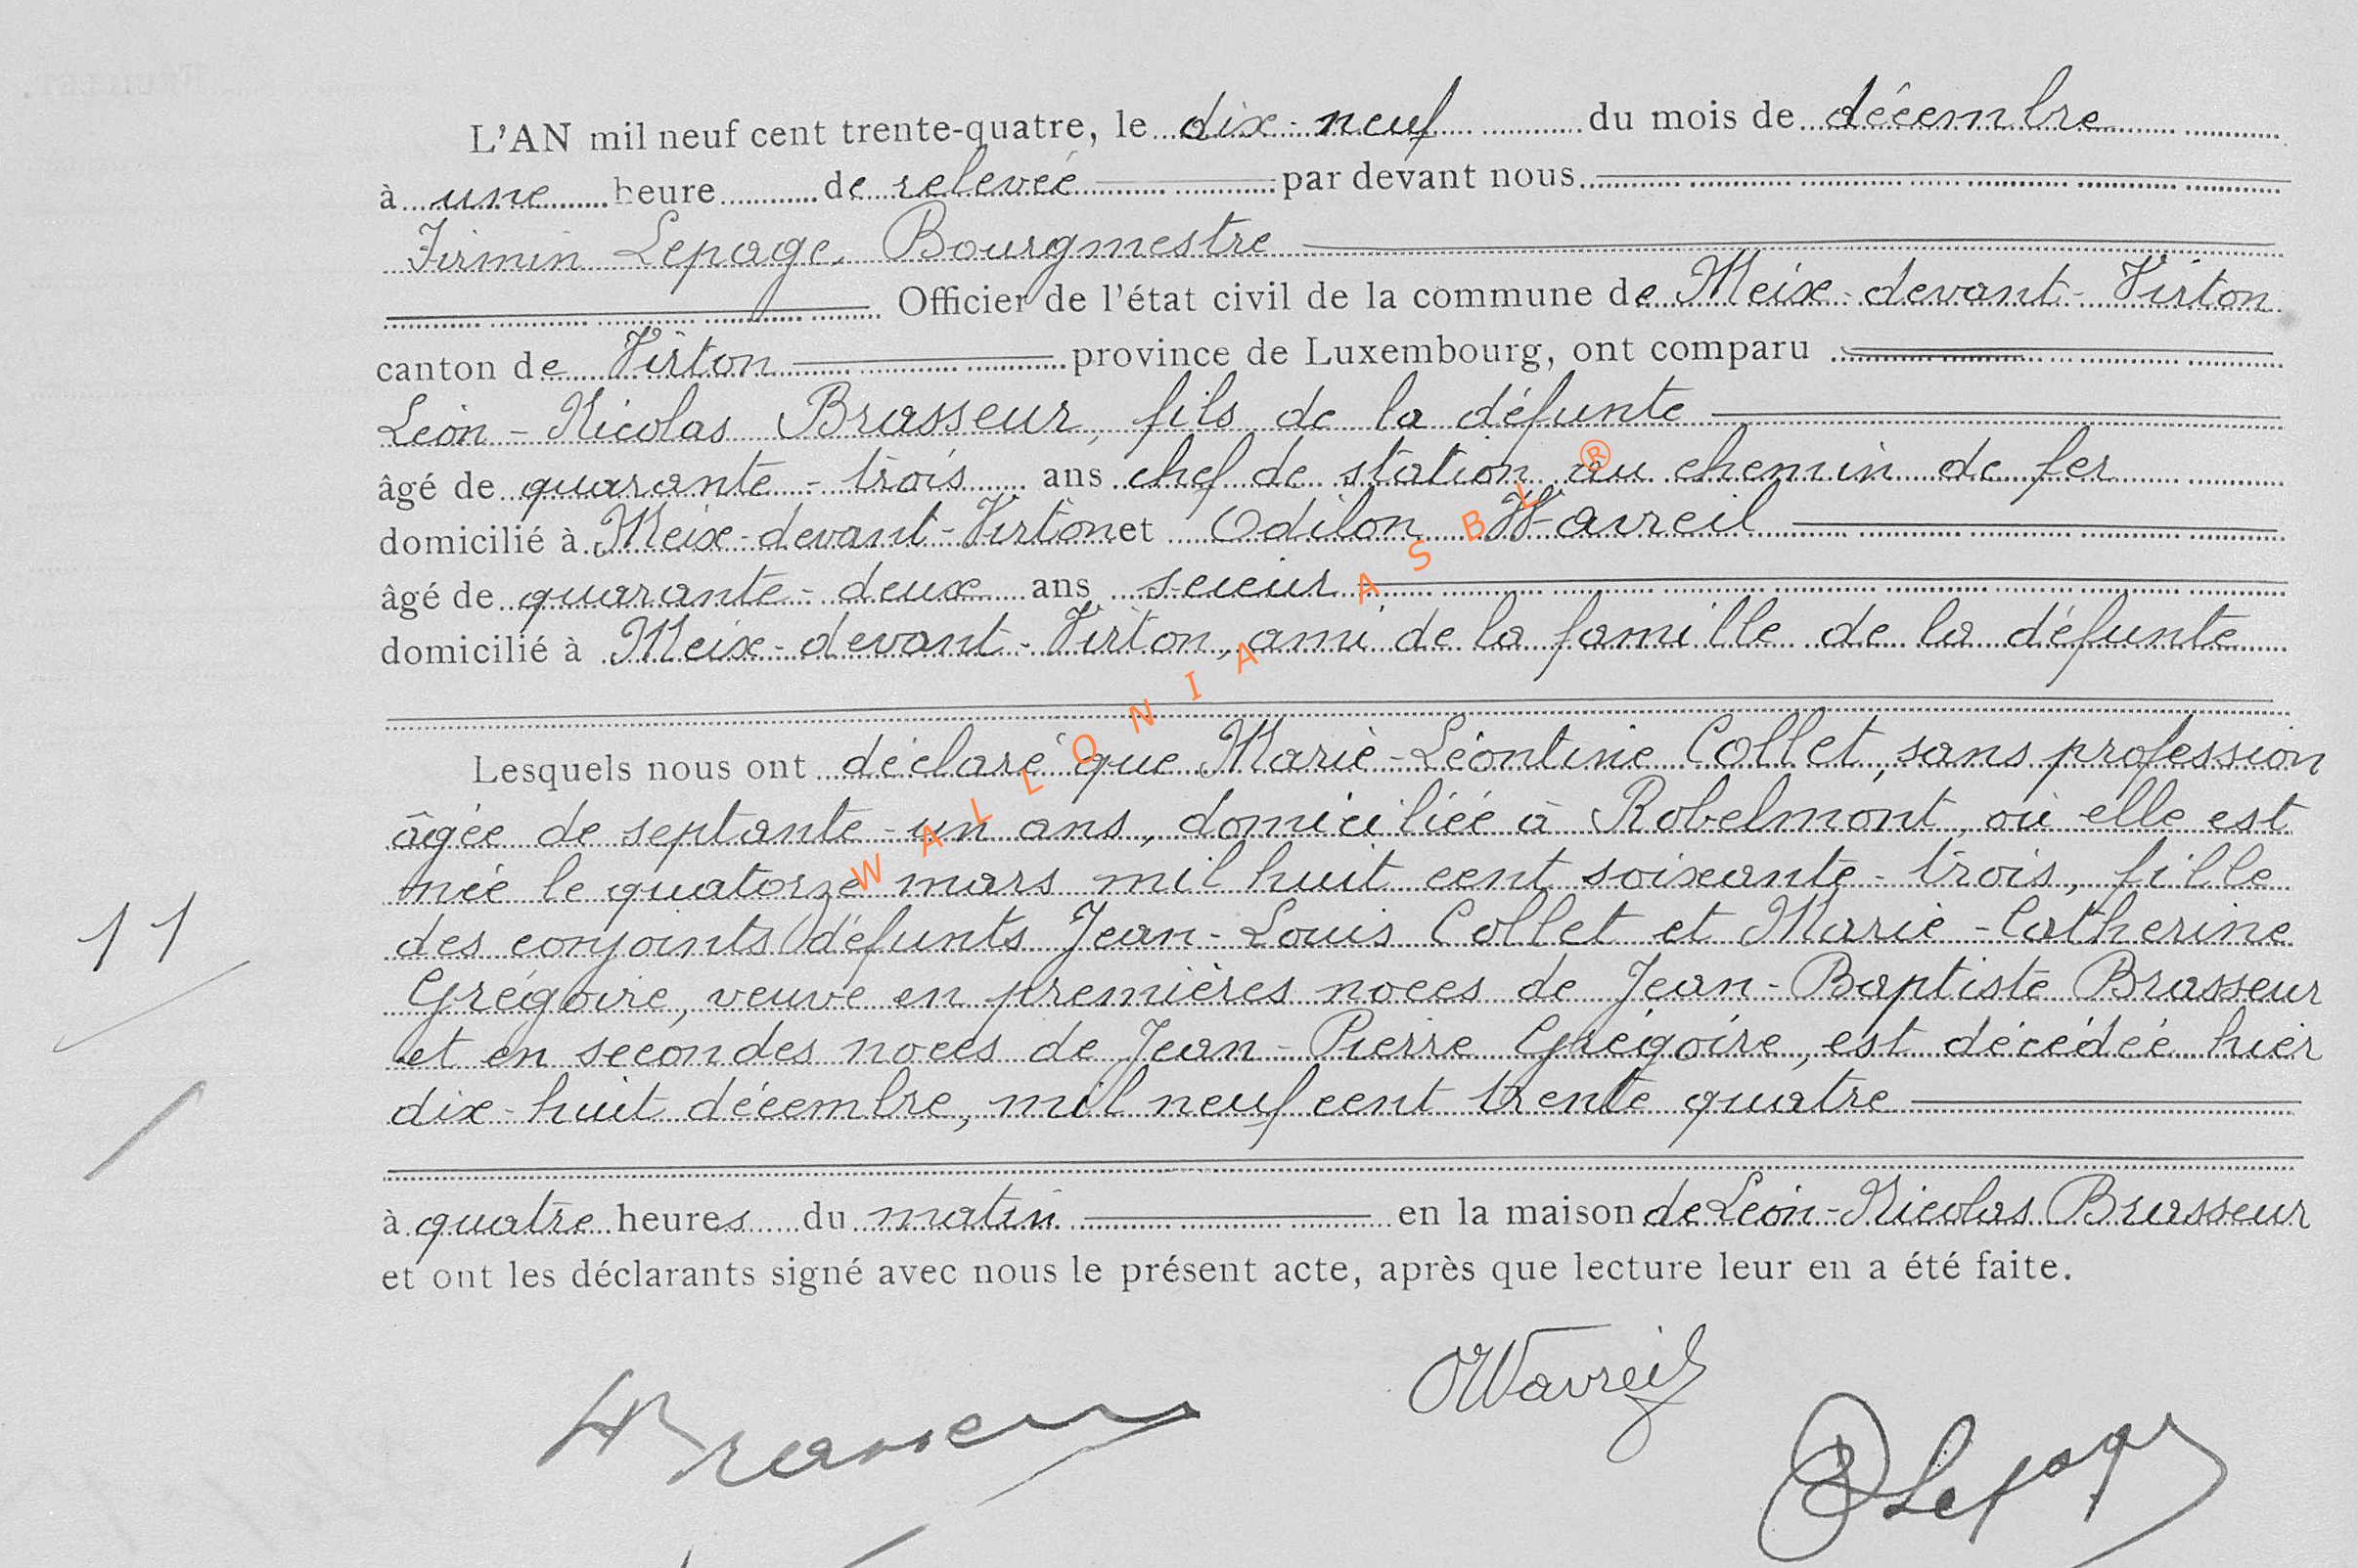 L'AN mil neuf cent trente-quatre, le dix-neuf du mois de décembre
à une heure de relevée par devant nous
Firmin Lepage, Bourgmestre
Officier de l'état civil de la commune de Meix-devant-Virton
canton de Virton province de Luxembourg, ont comparu
Léon-Nicolas Brasseur, fils de la défunte
âgé de quarante-trois ans chef de station au chemin de fer
domicilié à Meix-devant-Virton et Odilon Wavreil
âgé de quarante-deux ans scieur
domicilié à Meix-devant-Virton, ami de la famille de la défunte
Lesquels nous ont déclaré que Marie-Léontine Collet, sans profession
âgée de septante-un ans, domiciliée à Robelmont, où elle est
née le quatorze mars mil huit cent soixante-trois, fille
11
des conjoints défunts Jean-Louis Collet et Marie-Catherine
Grégoire, veuve en premières noces de Jean-Baptiste Brasseur
et en secondes noces de Jean-Pierre Grégoire, est décédée hier
dix-huit décembre, mil neuf cent trente quatre
à quatre heures du matin en la maison de Léon-Nicolas Brasseur
et ont les déclarants signé avec nous le présent acte, après que lecture leur en a été faite.
OWavreil
LBrasseur
Lepage
WALLONIA ASBL ®